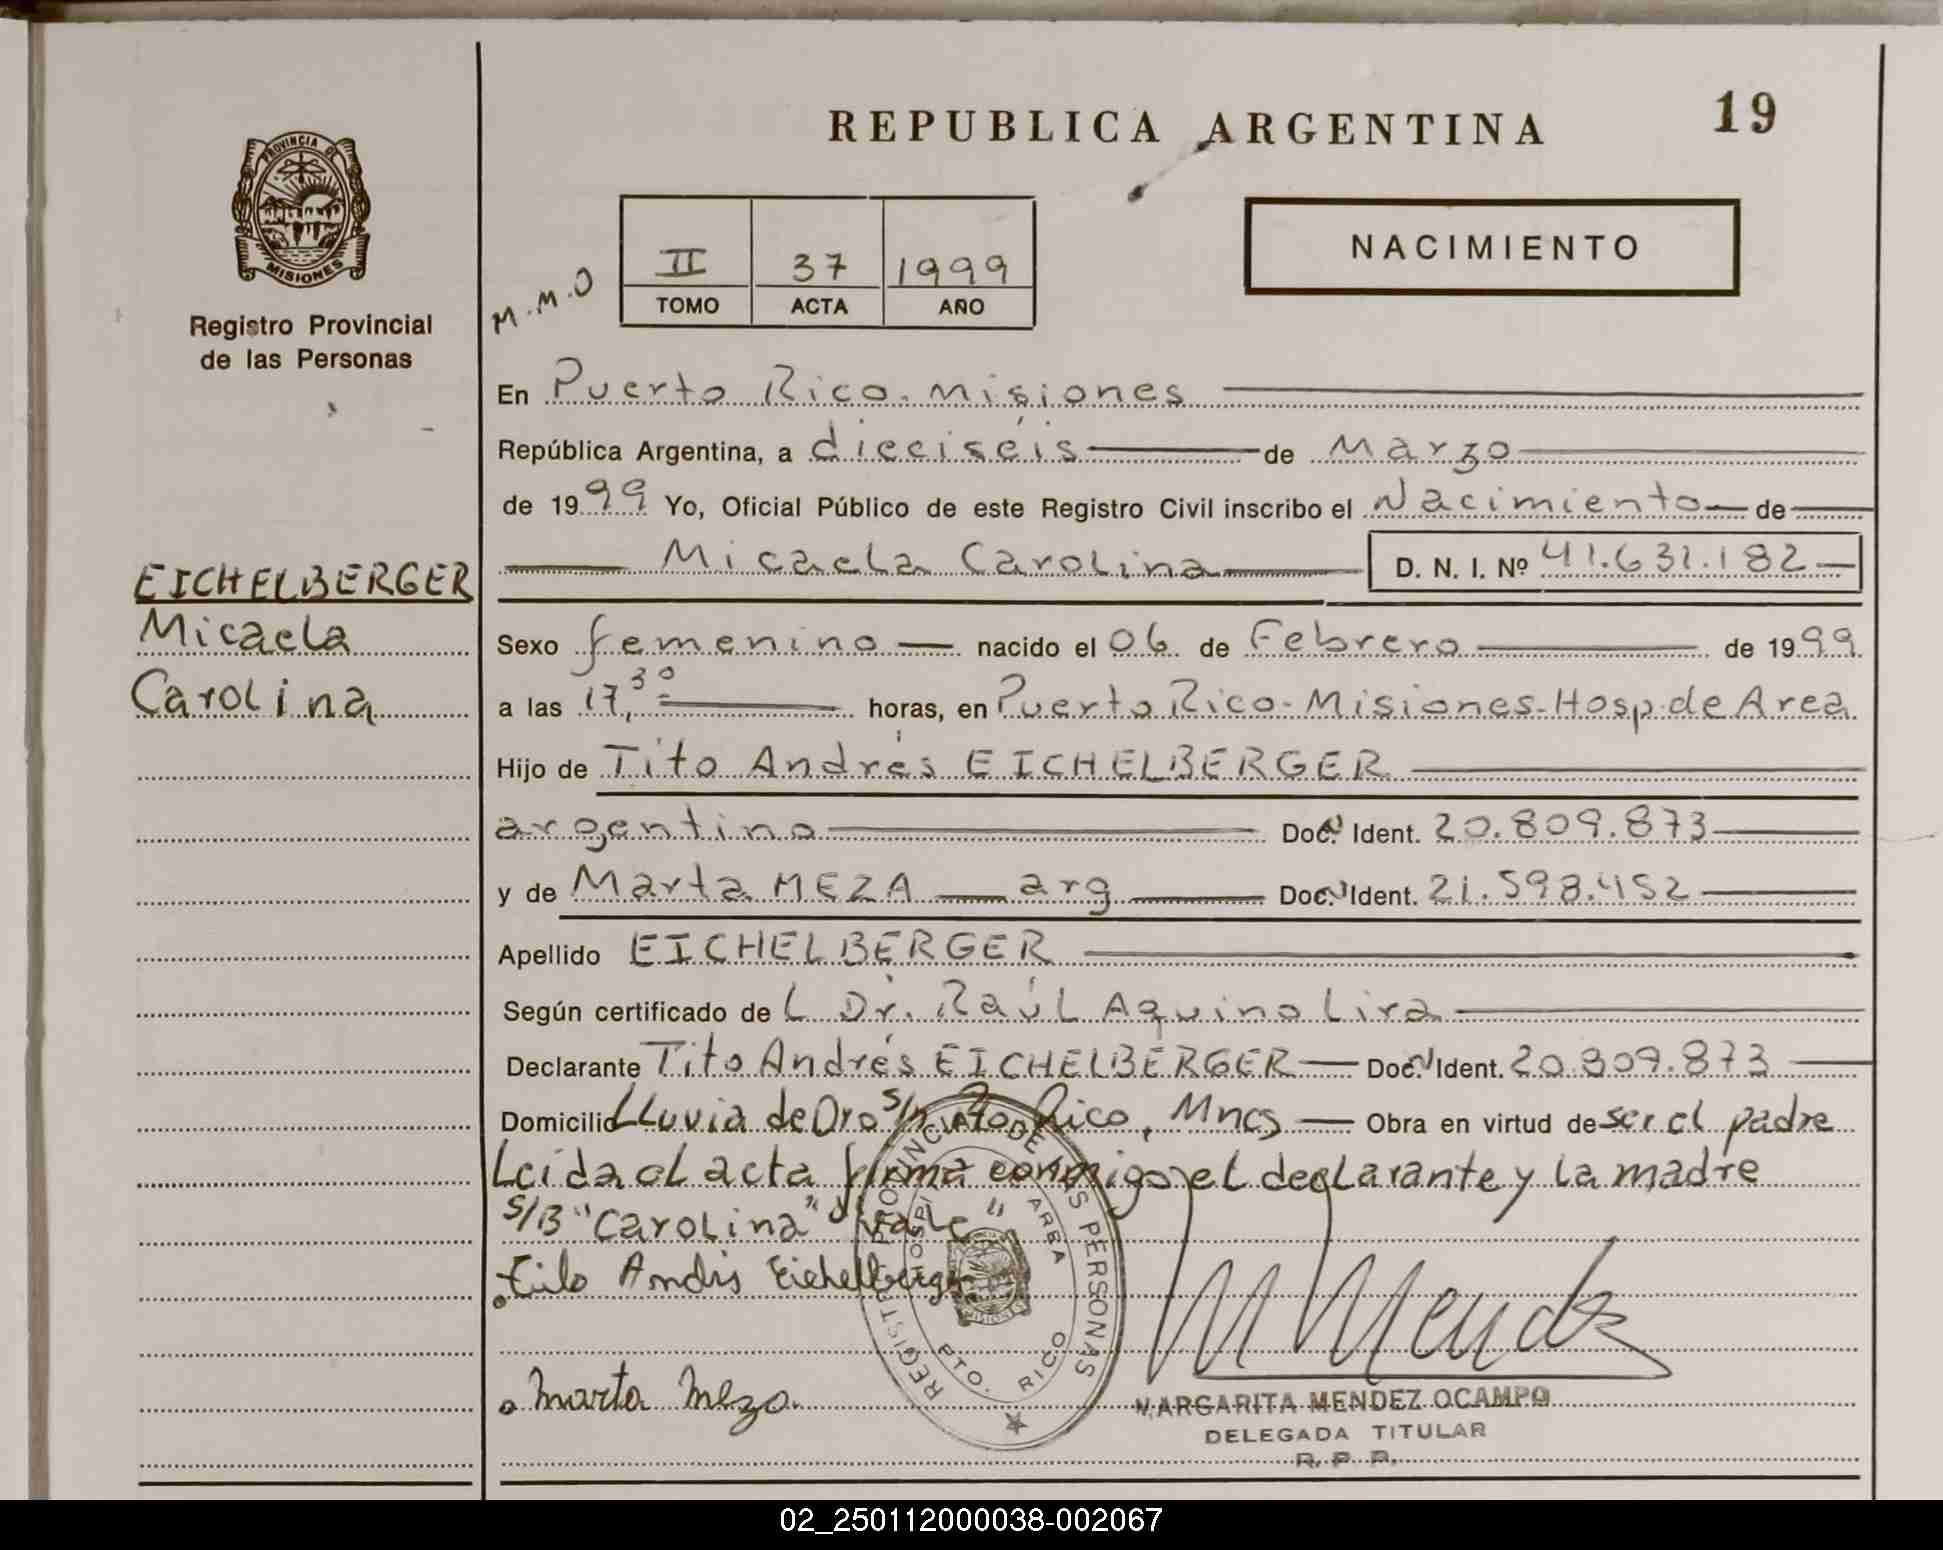 REPUBLICA ARGENTINA
19
PROVINCIA DE
MISIONES
Registro Provincial
de las Personas
M.M.O
II 37 1999
TOMO ACTA AÑO
NACIMIENTO
En Puerto Rico. Misiones
República Argentina, a dieciséis de Marzo
de 1999 Yo, Oficial Público de este Registro Civil inscribo el Nacimiento de
Micaela Carolina D. N. I. Nº 41.631.182
EICHELBERGER
Micaela
Carolina
Sexo femenino nacido el 06 de Febrero de 1999
a las 17,30 horas, en Puerto Rico-Misiones-Hosp.de Area
Hijo de Tito Andrés EICHELBERGER
argentino Doc. Ident. 20.809.873
y de Marta MEZA arg Doc. Ident. 21.598.452
Apellido EICHELBERGER
Según certificado de L Dr. Raúl Aquino Lira
Declarante Tito Andrés EICHELBERGER Doc. Ident. 20.809.873
Domicilio Lluvia de Oro s/n Pto Rico, Mnes Obra en virtud de ser el padre
Leida el acta firma conmigo el declarante y la madre
S/B "Carolina" "vale"
Tito Andrés Eichelberger
Marta Meza
REGISTRO PROVINCIAL DE LAS PERSONAS
HOSPI AREA
PTO. RICO
M Mendez
MARGARITA MENDEZ OCAMPO
DELEGADA TITULAR
R. P. P.
02_250112000038-002067